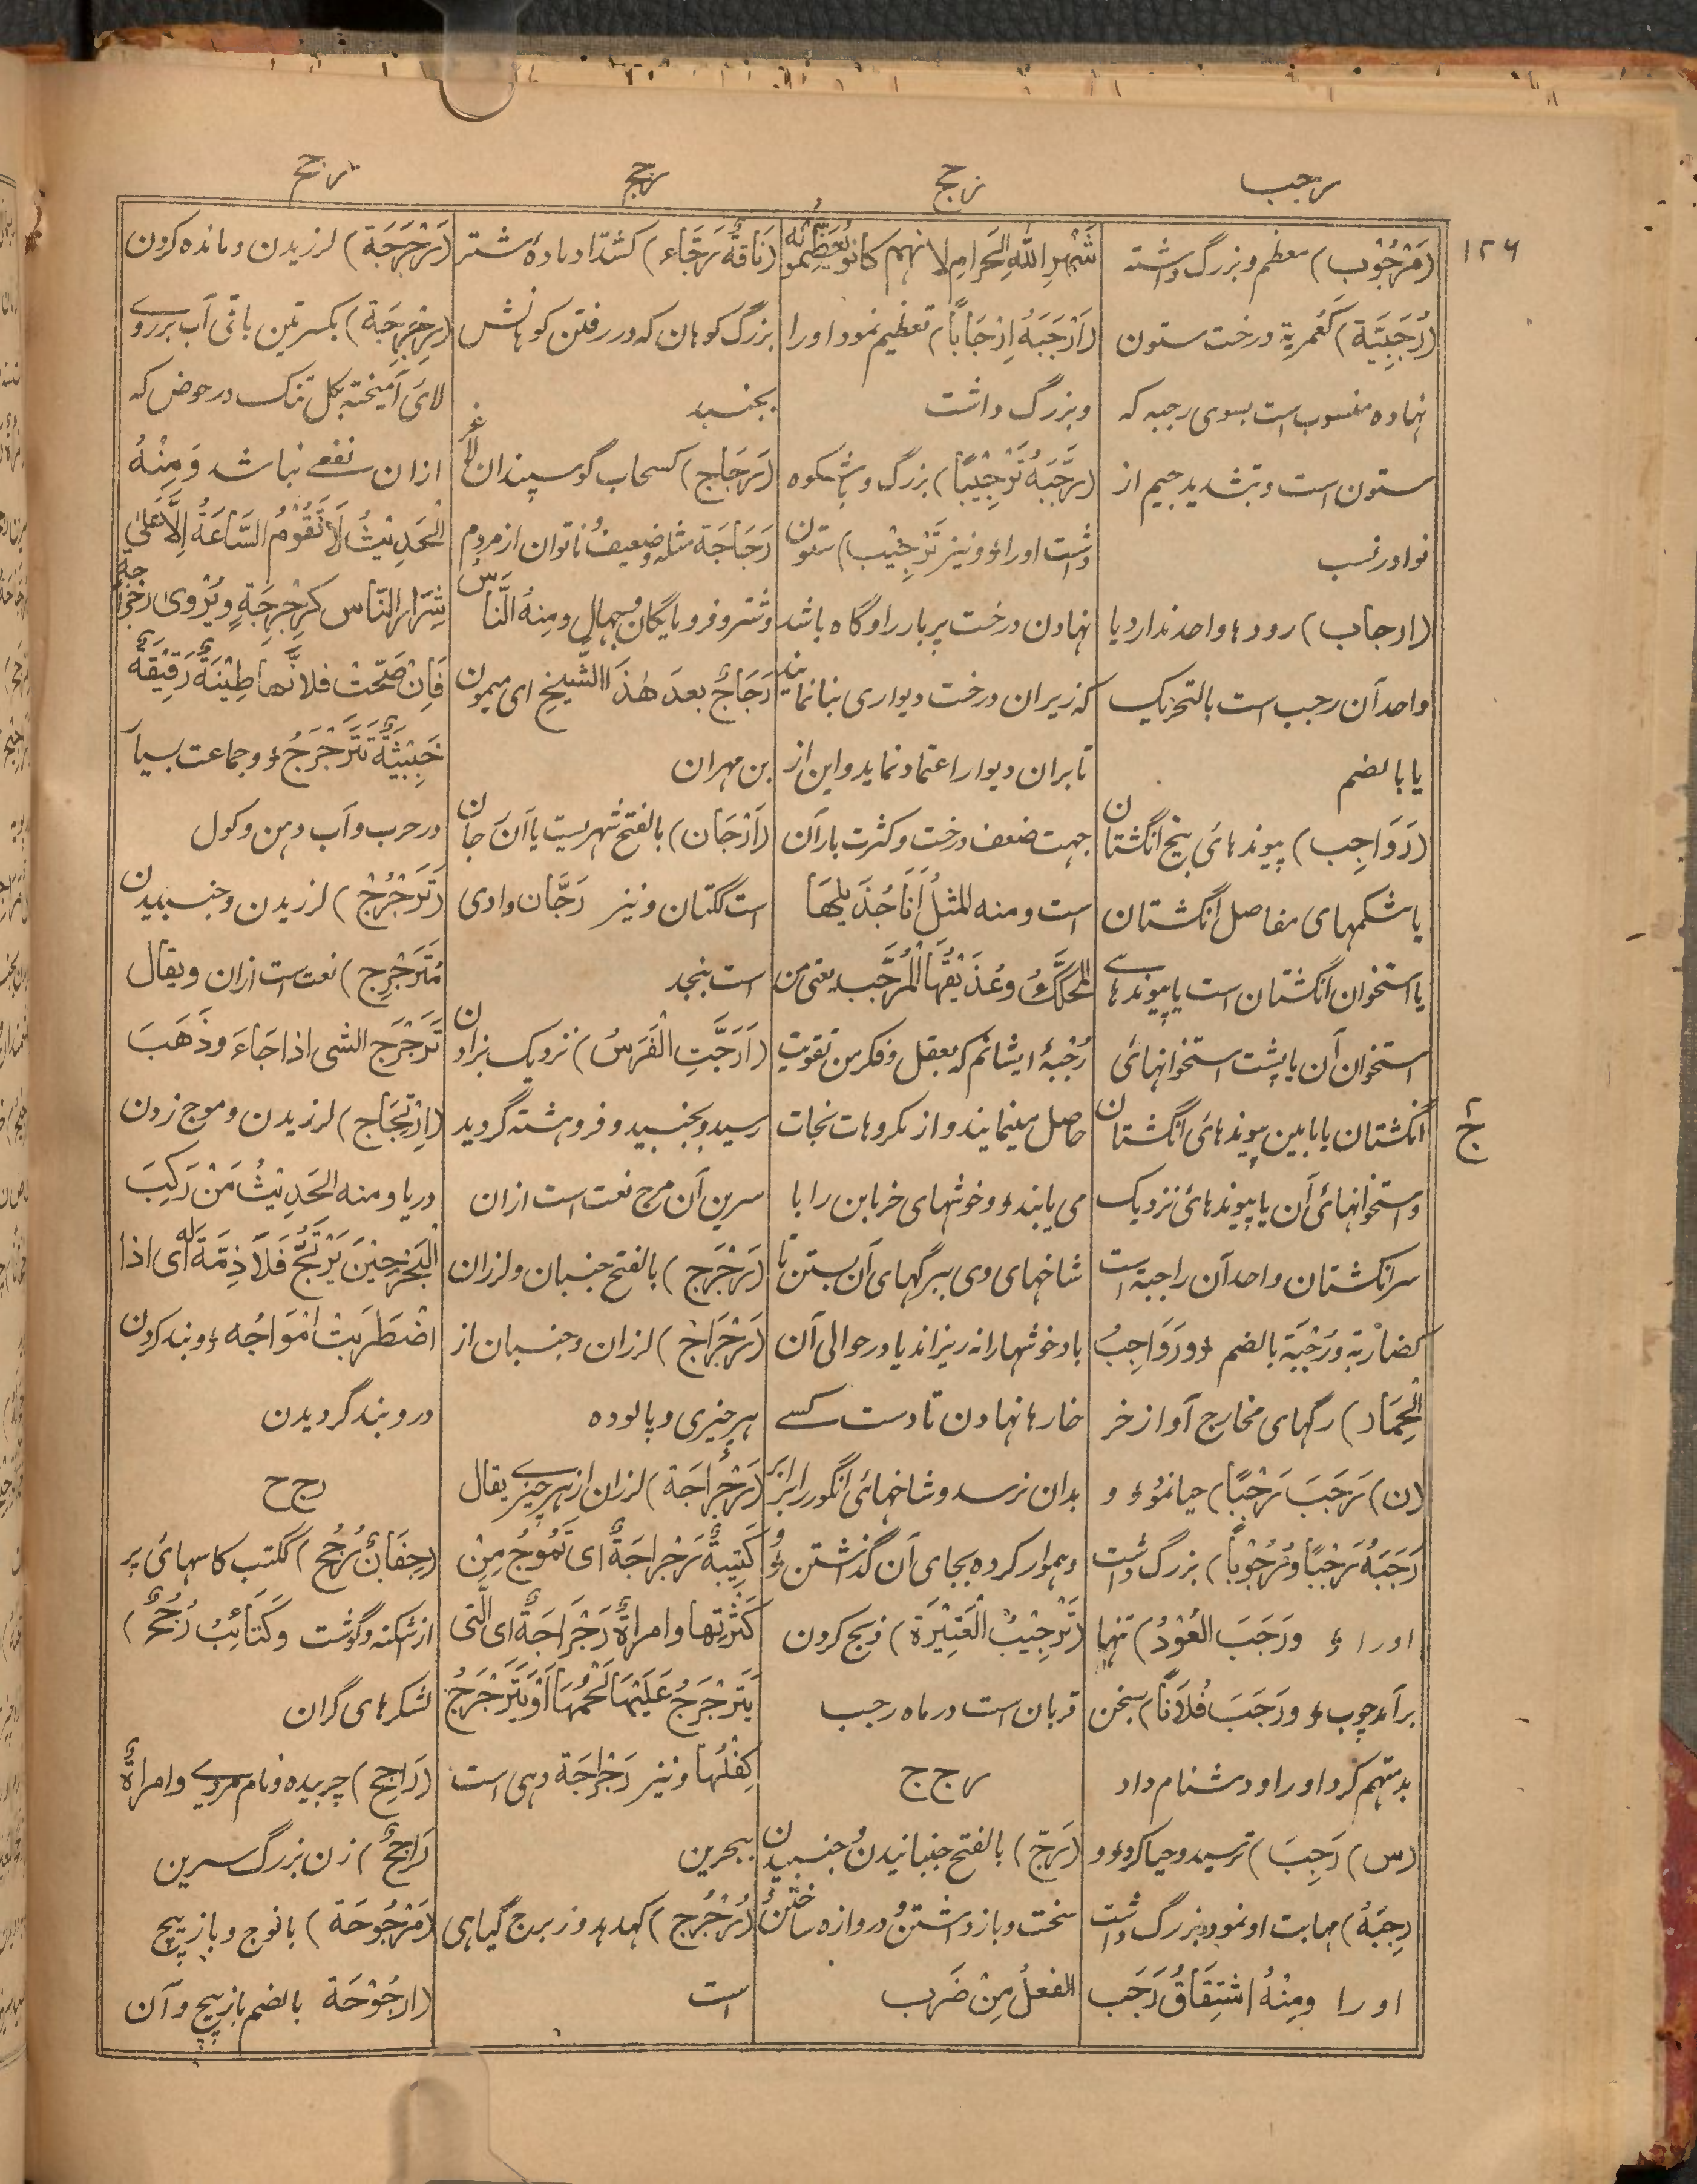 رجب
رجج
رجج
رجح
۱۲۶
(مَرْجُوْب) معظم و بزرگ داشته
(رُجَبِيَّة) كَعُمرِية درخت ستون
نهاده منسوب است بسوی رجبه که
ستون است و بتشدید جیم از
نوادر نسب
(ارجاب) رودها واحد ندارد یا
واحد آن رجب است بالتحریک
یا بالضم
(رَوَاجِب) پیوندهائی بیخ انگشتان
یا شکمهای مفاصل انگشتان
یا استخوان انگشتان است یا پیوندهای
استخوان آن یا پشت استخوانهائی
انگشتان یا مابین پیوندهائی انگشتان
و استخوانهائی آن یا پیوندهائی نزدیک
سر انگشتان واحد آن راجبة است
کضاربة و رُجْبَة بالضم و رَوَاجِبُ
الْحِمَار) رگهای مخارج آواز خر
(ن) رَجَبَ رَجْبًا) حیا نمود و
رَجَبَهُ رَجْبًا و رُجُوْباً) بزرگ داشت
اورا و رَجَبَ العُوْدُ) تنها
برآمد چوب و رَجَبَ فُلَاناً) بسخن
بد متهم کرد اورا و دشنام داد
(س) رَجِبَ) ترسید و حیا کرد و
رَجِبَهُ) مهابت او نمود و بزرگ داشت
اورا ومِنْهُ اشتِقَاقُ رَجَب
شَهْرِ اللهِ الحَرامِ لانهم كانوا يُعَظِّمونَه
(أَرْجَبَهُ اِرْجَاباً) تعظیم نمود او را
و بزرگ داشت
(رَجَّبَهُ تَرْجِيْبًا) بزرگ و باشکوه
داشت اورا و نیز تَرْجِيْب) ستون
نهادن درخت پربار را و گاه باشد
که زیر ان درخت دیواری بنا نمایند
تا بران دیوار اعتماد نماید و این از
جهت ضعف درخت و کثرت بار آن
است و منه المثلُ اَنَا جُذَيلُها
المُحَكَّكُ و عُذَيْقُهَا الْمُرَجَّب یعنی من
رُجْبهٔ ایشانم که بعقل و فکر من تقویت
حاصل مینمایند و از مکروهات نجات
می یابند و خوشهای خرمابن را با
شاخهای وی ببرگهای آن بستن تا
باد خوشها را نه ریزاند یا در حوالی آن
خارها نهادن تا دست کسے
بدان نرسد و شاخهائی انگور را برابر
و هموار کرده بجای آن گذاشتن و
(تَرْجِيْبُ الْعَتِيْرَة) ذبح کردن
قربان است در ماه رجب
رج ج
(رَجّ) بالفتح جنبانیدن و جنبیدن
سخت و بازداشتن و دروازه ساختن
الفعلُ مِنْ ضَرَب
(نَاقَةٌ رَجَّاء) کشدّاد مادهٔ شتر
بزرگ کوهان که در رفتن کوهانش
بجنبد
(رَجَاج) کسحاب گوسپندان لاغر
رَجَاجَة مثله و ضعیف و ناتوان از مردم
و شتر و فرومایگان و جهال ومنهُ النَّاسُ
رَجَاجٌ بعدَ هٰذَا الشَّيخِ ای میمون
بن مهران
(اَرْجَان) بالفتح شهریست یا آن رجان
است ککتان و نیز رَجَّان وادی
است بنجد
(اَرَجَّتِ الْفَرَسُ) نزدیک بزادن
رسید و بجنبید و فروهشته گردید
سرین آن مرج نعت است ازان
(رَجْرَج) بالفتح جنبان و لرزان
(رَجْرَاج) لرزان و جنبان از
هر چیزی و پالوده
(رَجْرَاجَة) لرزان از هر چیزے یقال
كَتِيْبةٌ رَجْراجَةٌ ای تَمُوْجُ مِنْ
كَثْرِتها وامراةٌ رَجْرَاجَةٌ ای الَّتی
يَتَرَجْرَجُ عَلَيْهَا لَحْمُهَا اَوْ يَتَرَجْرَجُ
كِفْلُها و نیز رَجْراجَة دهی است
ببحرین
(رُجْرُج) کهدهد و زبرج گیاهی
است
(رَجْرَجَة) لرزیدن و مانده کردن
(رِجْرِجَة) بکسرتین باقی آب بر روے
لای آمیخته بگل تنک در حوض که
ازان نفعے نباشد وَ مِنْهُ
الْحَدِيْثُ لَا تَقُوْمُ السَّاعَةُ اِلَّا عَلىٰ
شِرَارِ النَّاس كَرِجْرِجَةٍ و يُرْوىٰ رجراجة
فَاِنْ صَحَّتْ فلانَّها طِيْنَةٌ رَقِيْقَةٌ
خَبِيْثَةٌ تَتَرَجْرَجُ و جماعت بسیار
در حرب و آب دهن و گول
(تَرَجْرُج) لرزیدن و جنبیدن
مُتَرَجْرِج) نعت است ازان و یقال
تَرَجْرَجَ الشی اذا جَاءَ وَ ذَهَبَ
(اِرْتِجَاج) لرزیدن و موج زدن
دریا و منه الحَدِيْثُ مَنْ رَكِبَ
الْبَحْرَ حِيْنَ يَرْتَجُّ فَلَا ذِمَّةَ لَه ای اذا
اضْطَرَبَتْ اَمْوَاجُه و بند کردن
در و بند گردیدن
رج ح
(جِفَانٌ رُجُح) ککتب کاسهائی پر
از اشکنه و گوشت و كَتَائِبُ رُجُحٌ)
لشکرهای گران
(رَاجِح) چربیده و نام مردے و امراةٌ
رَاجِحٌ) زن بزرگ سرین
(مَرْجُوحَة) بانوج و بازپیچ
(ارجُوْحَة بالضم بازپیچ و آن
ج